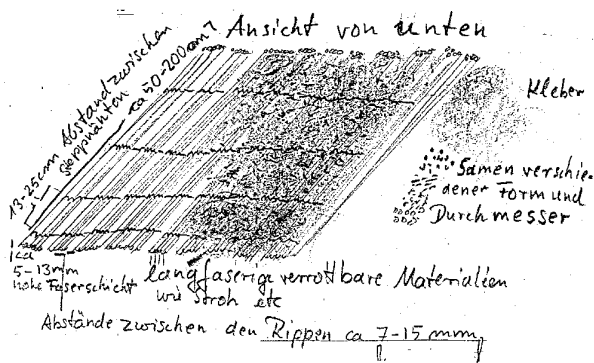 Ansicht von unten
ca 50-200cm
13-25cm Abstand zwischen
Steppnähten
Kleber
Samen verschie-
dener Form und
Durchmesser
ca
5-13mm
hohe Faserschicht
langfaserige verrottbare Materialien
wie Stroh etc
Abstände zwischen den Rippen ca 7-15mm